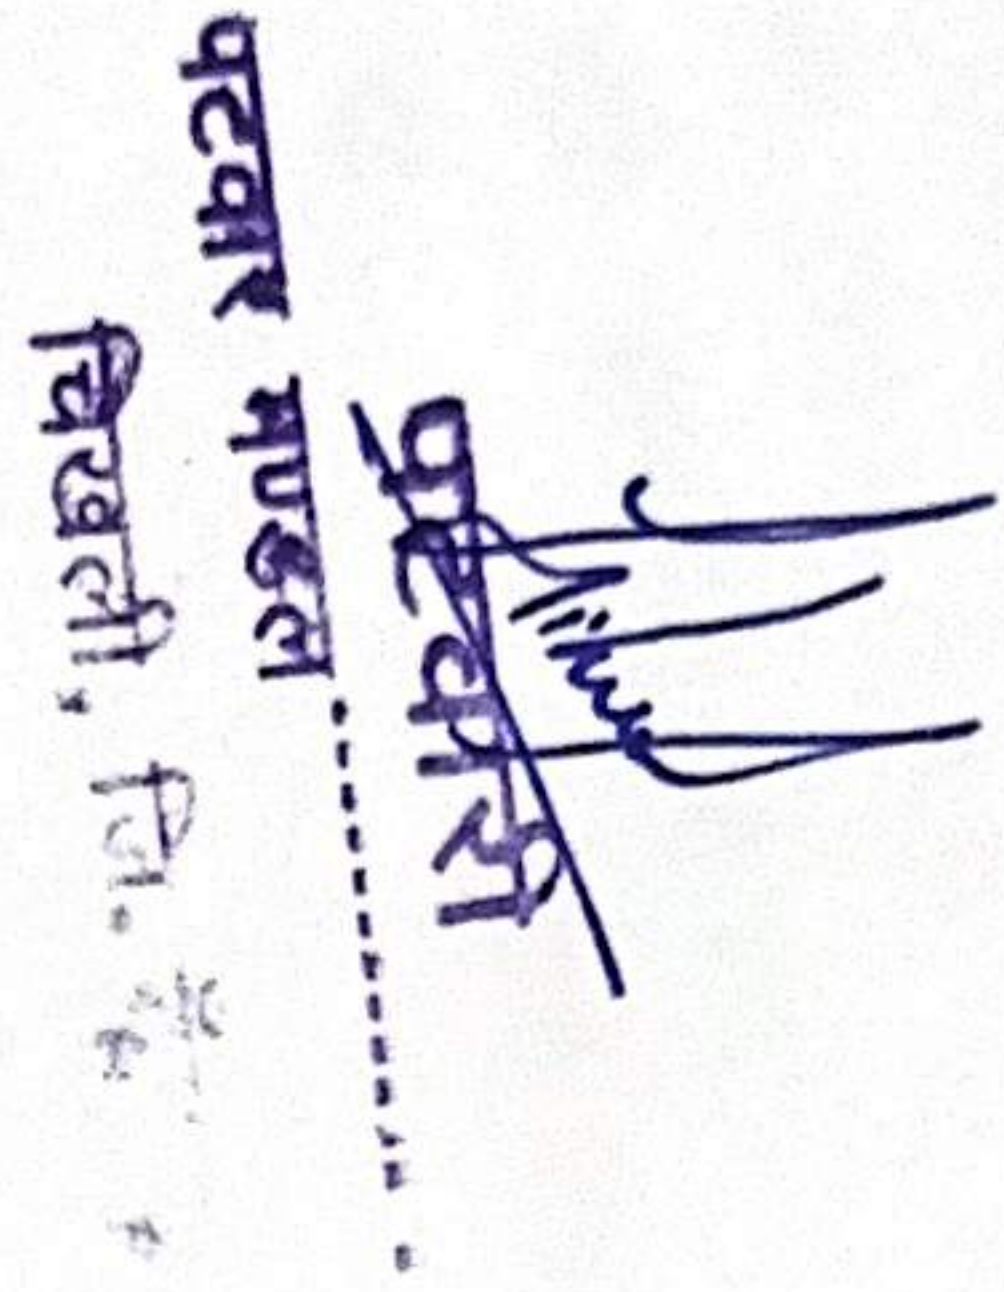 पटवारी
पटवार मण्डल
चिखली, जि.